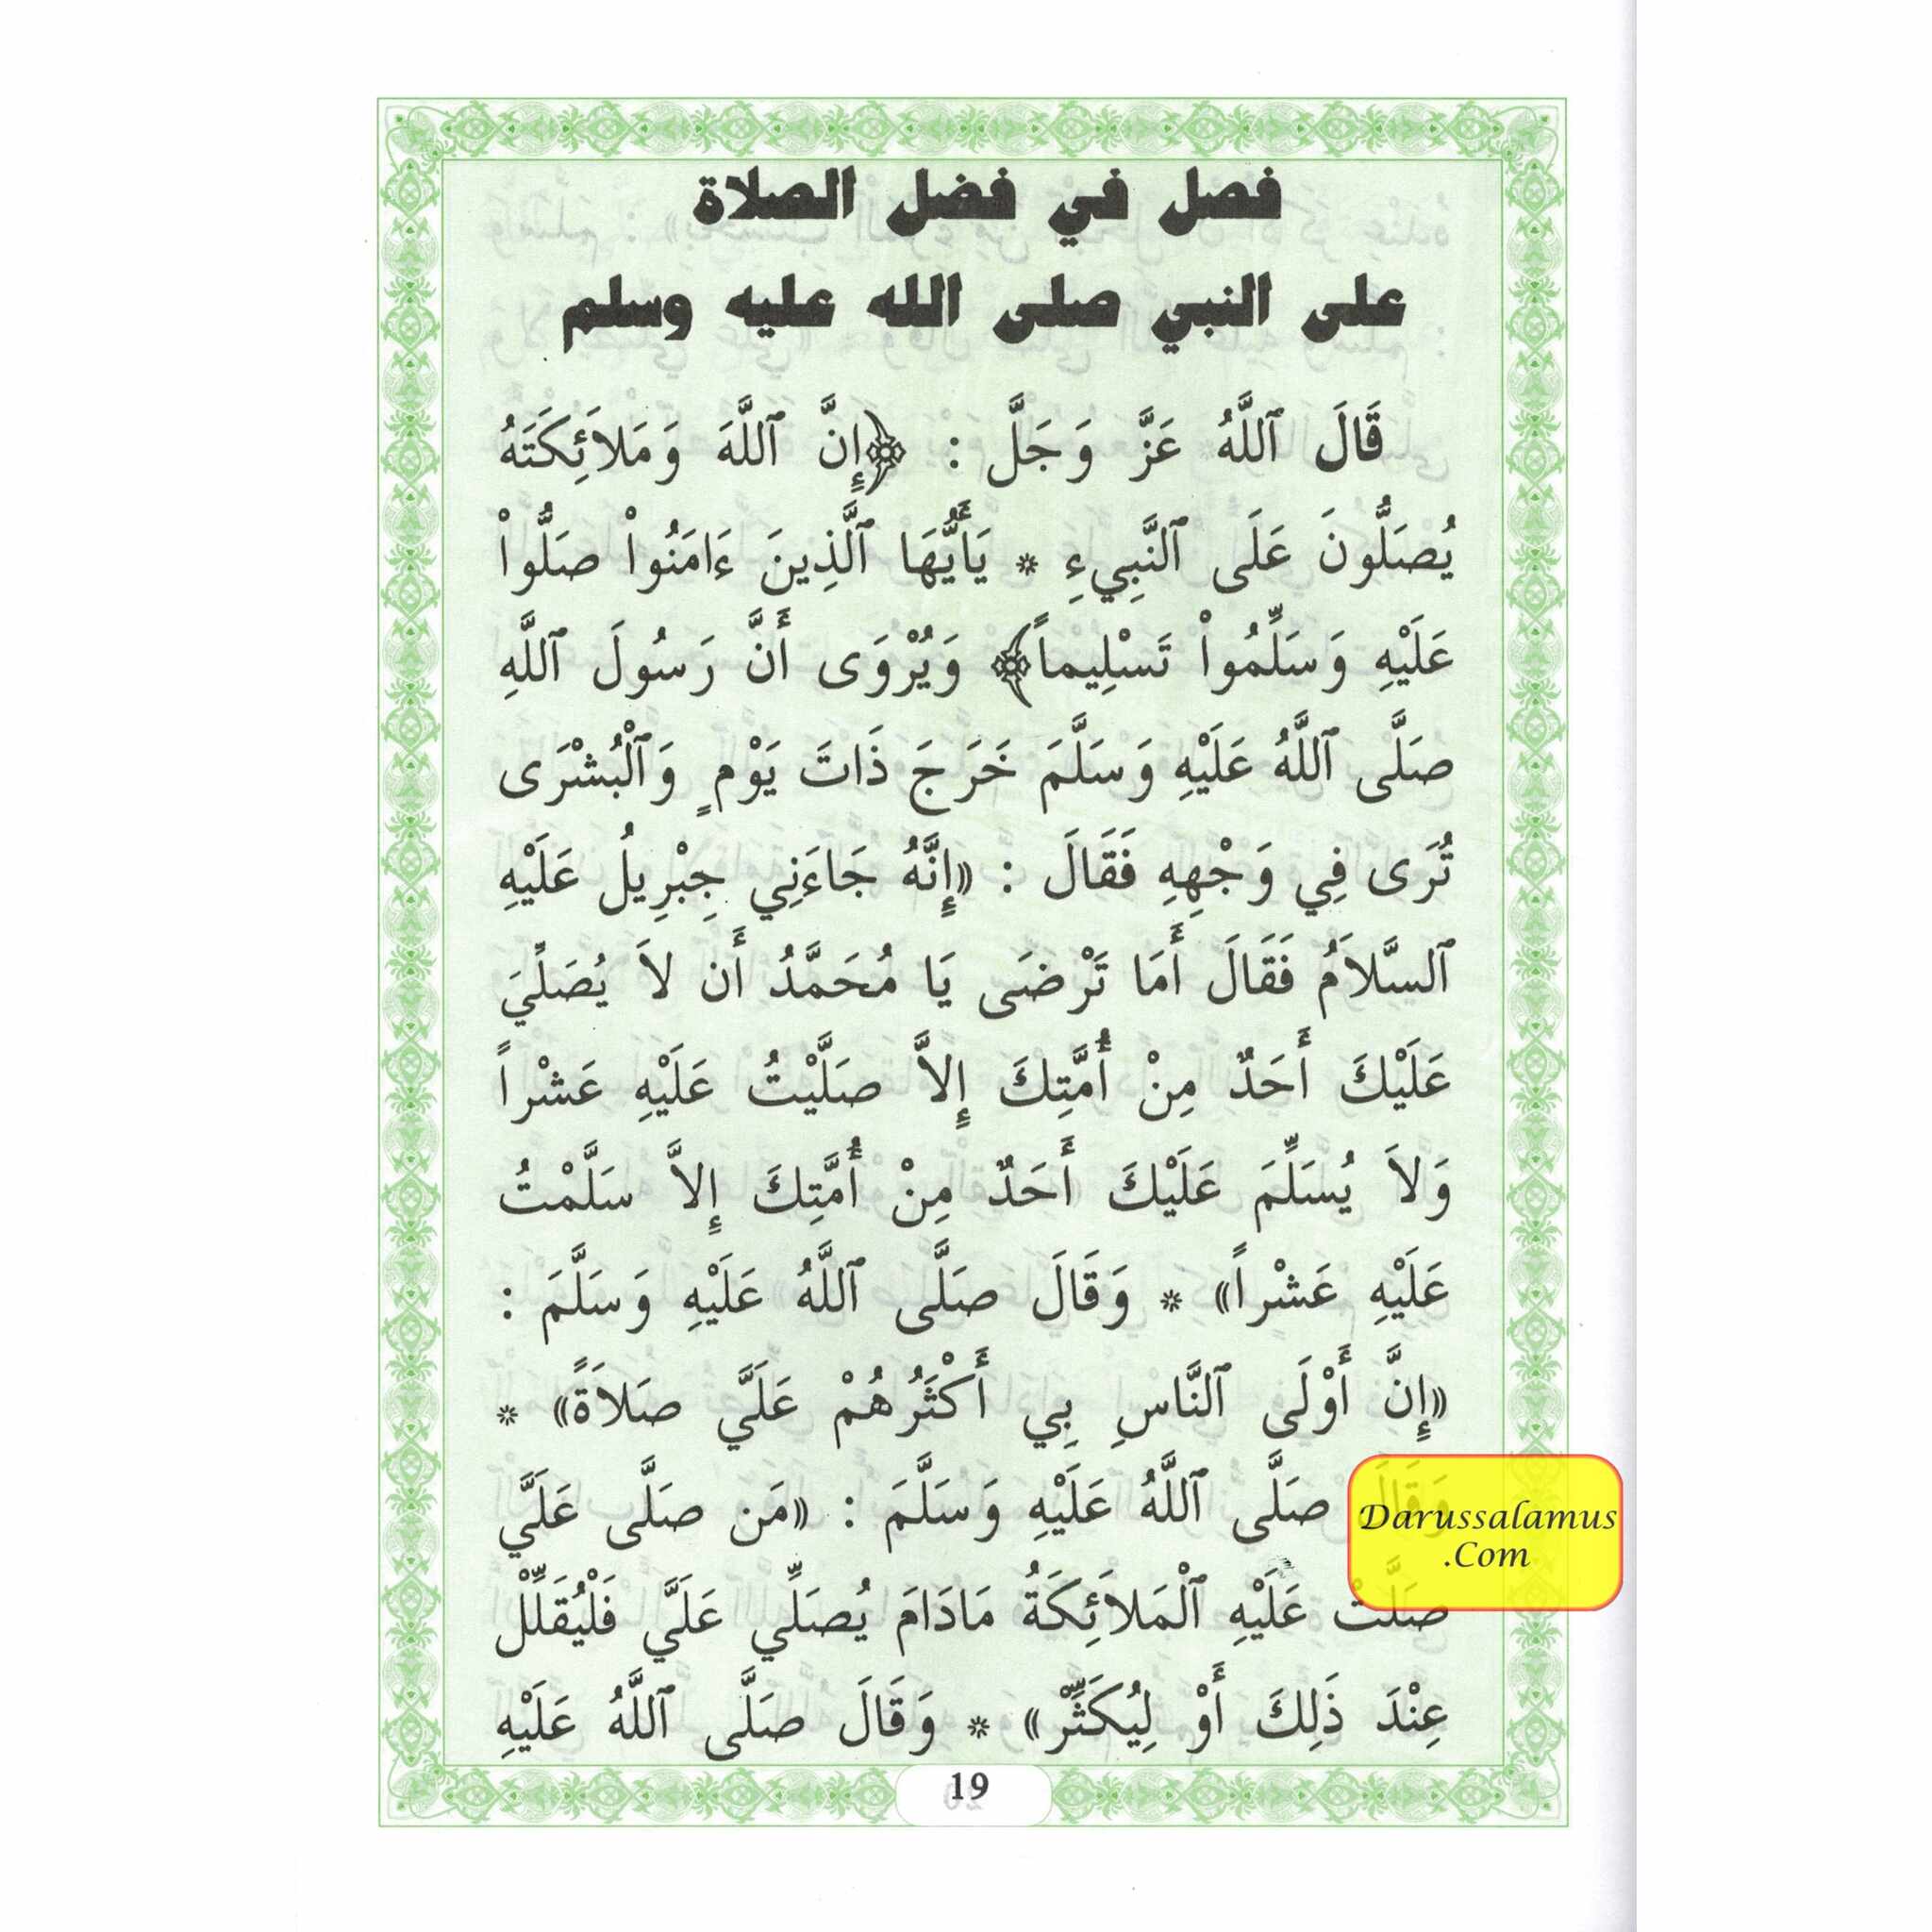 فصل في فضل الصلاة
على النبي صلى الله عليه وسلم
قَالَ ٱللَّهُ عَزَّ وَجَلَّ : ﴿إِنَّ ٱللَّهَ وَمَلاَئِكَتَهُ
يُصَلُّونَ عَلَى ٱلنَّبِيءِ * يَأَيُّهَا ٱلَّذِينَ ءَامَنُواْ صَلُّواْ
عَلَيْهِ وَسَلِّمُواْ تَسْلِيماً﴾ وَيُرْوَى أَنَّ رَسُولَ ٱللَّهِ
صَلَّى ٱللَّهُ عَلَيْهِ وَسَلَّمَ خَرَجَ ذَاتَ يَوْمٍ وَٱلْبُشْرَى
تُرَى فِي وَجْهِهِ فَقَالَ : «إِنَّهُ جَاءَنِي جِبْرِيلُ عَلَيْهِ
ٱلسَّلاَمُ فَقَالَ أَمَا تَرْضَى يَا مُحَمَّدُ أَن لاَ يُصَلِّيَ
عَلَيْكَ أَحَدٌ مِنْ أُمَّتِكَ إِلاَّ صَلَّيْتُ عَلَيْهِ عَشْراً
وَلاَ يُسَلِّمَ عَلَيْكَ أَحَدٌ مِنْ أُمَّتِكَ إِلاَّ سَلَّمْتُ
عَلَيْهِ عَشْراً» * وَقَالَ صَلَّى ٱللَّهُ عَلَيْهِ وَسَلَّمَ :
«إِنَّ أَوْلَى ٱلنَّاسِ بِي أَكْثَرُهُمْ عَلَيَّ صَلاَةً» *
وَقَالَ صَلَّى ٱللَّهُ عَلَيْهِ وَسَلَّمَ : «مَن صَلَّى عَلَيَّ
صَلَّتْ عَلَيْهِ ٱلْمَلاَئِكَةُ مَادَامَ يُصَلِّي عَلَيَّ فَلْيُقَلِّلْ
عِنْدَ ذَلِكَ أَوْ لِيُكَثِّرْ» * وَقَالَ صَلَّى ٱللَّهُ عَلَيْهِ
Darussalamus
.Com
19